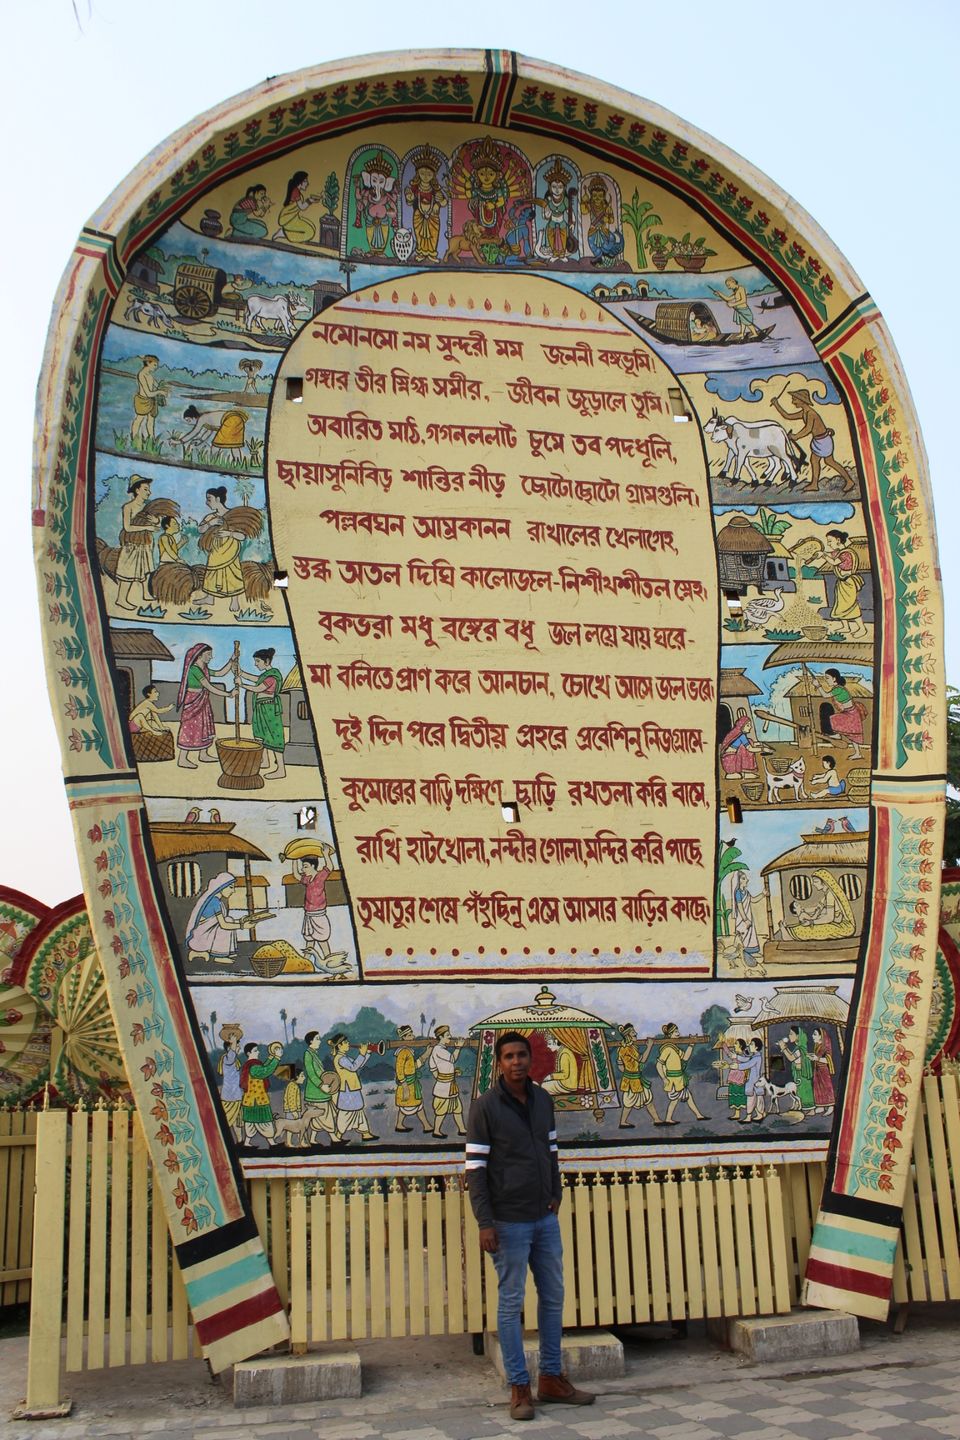 নমোনমো নম সুন্দরী মম জননী বঙ্গভূমি।
গঙ্গার তীর স্নিগ্ধ সমীর,- জীবন জুড়ালে তুমি।
অবারিত মাঠ, গগনললাট চুমে তব পদধূলি,
ছায়াসুনিবিড় শান্তির নীড় ছোটোছোটো গ্রামগুলি।
পল্লবঘন আম্রকানন রাখালের খেলাগেহ,
স্তব্ধ অতল দিঘি কালোজল-নিশীথশীতল স্নেহ।
বুকভরা মধু বঙ্গের বধূ জল লয়ে যায় ঘরে-
মা বলিতে প্রাণ করে আনচান, চোখে আসে জল ভরে।
দুই দিন পরে দ্বিতীয় প্রহরে প্রবেশিনু নিজগ্রামে-
কুমোরের বাড়ি দক্ষিণে ছাড়ি রথতলা করি বামে,
রাখি হাটখোলা, নন্দীর গোলা, মন্দির করি পাছে
তৃষাতুর শেষে পঁহুছিনু এসে আমার বাড়ির কাছে।